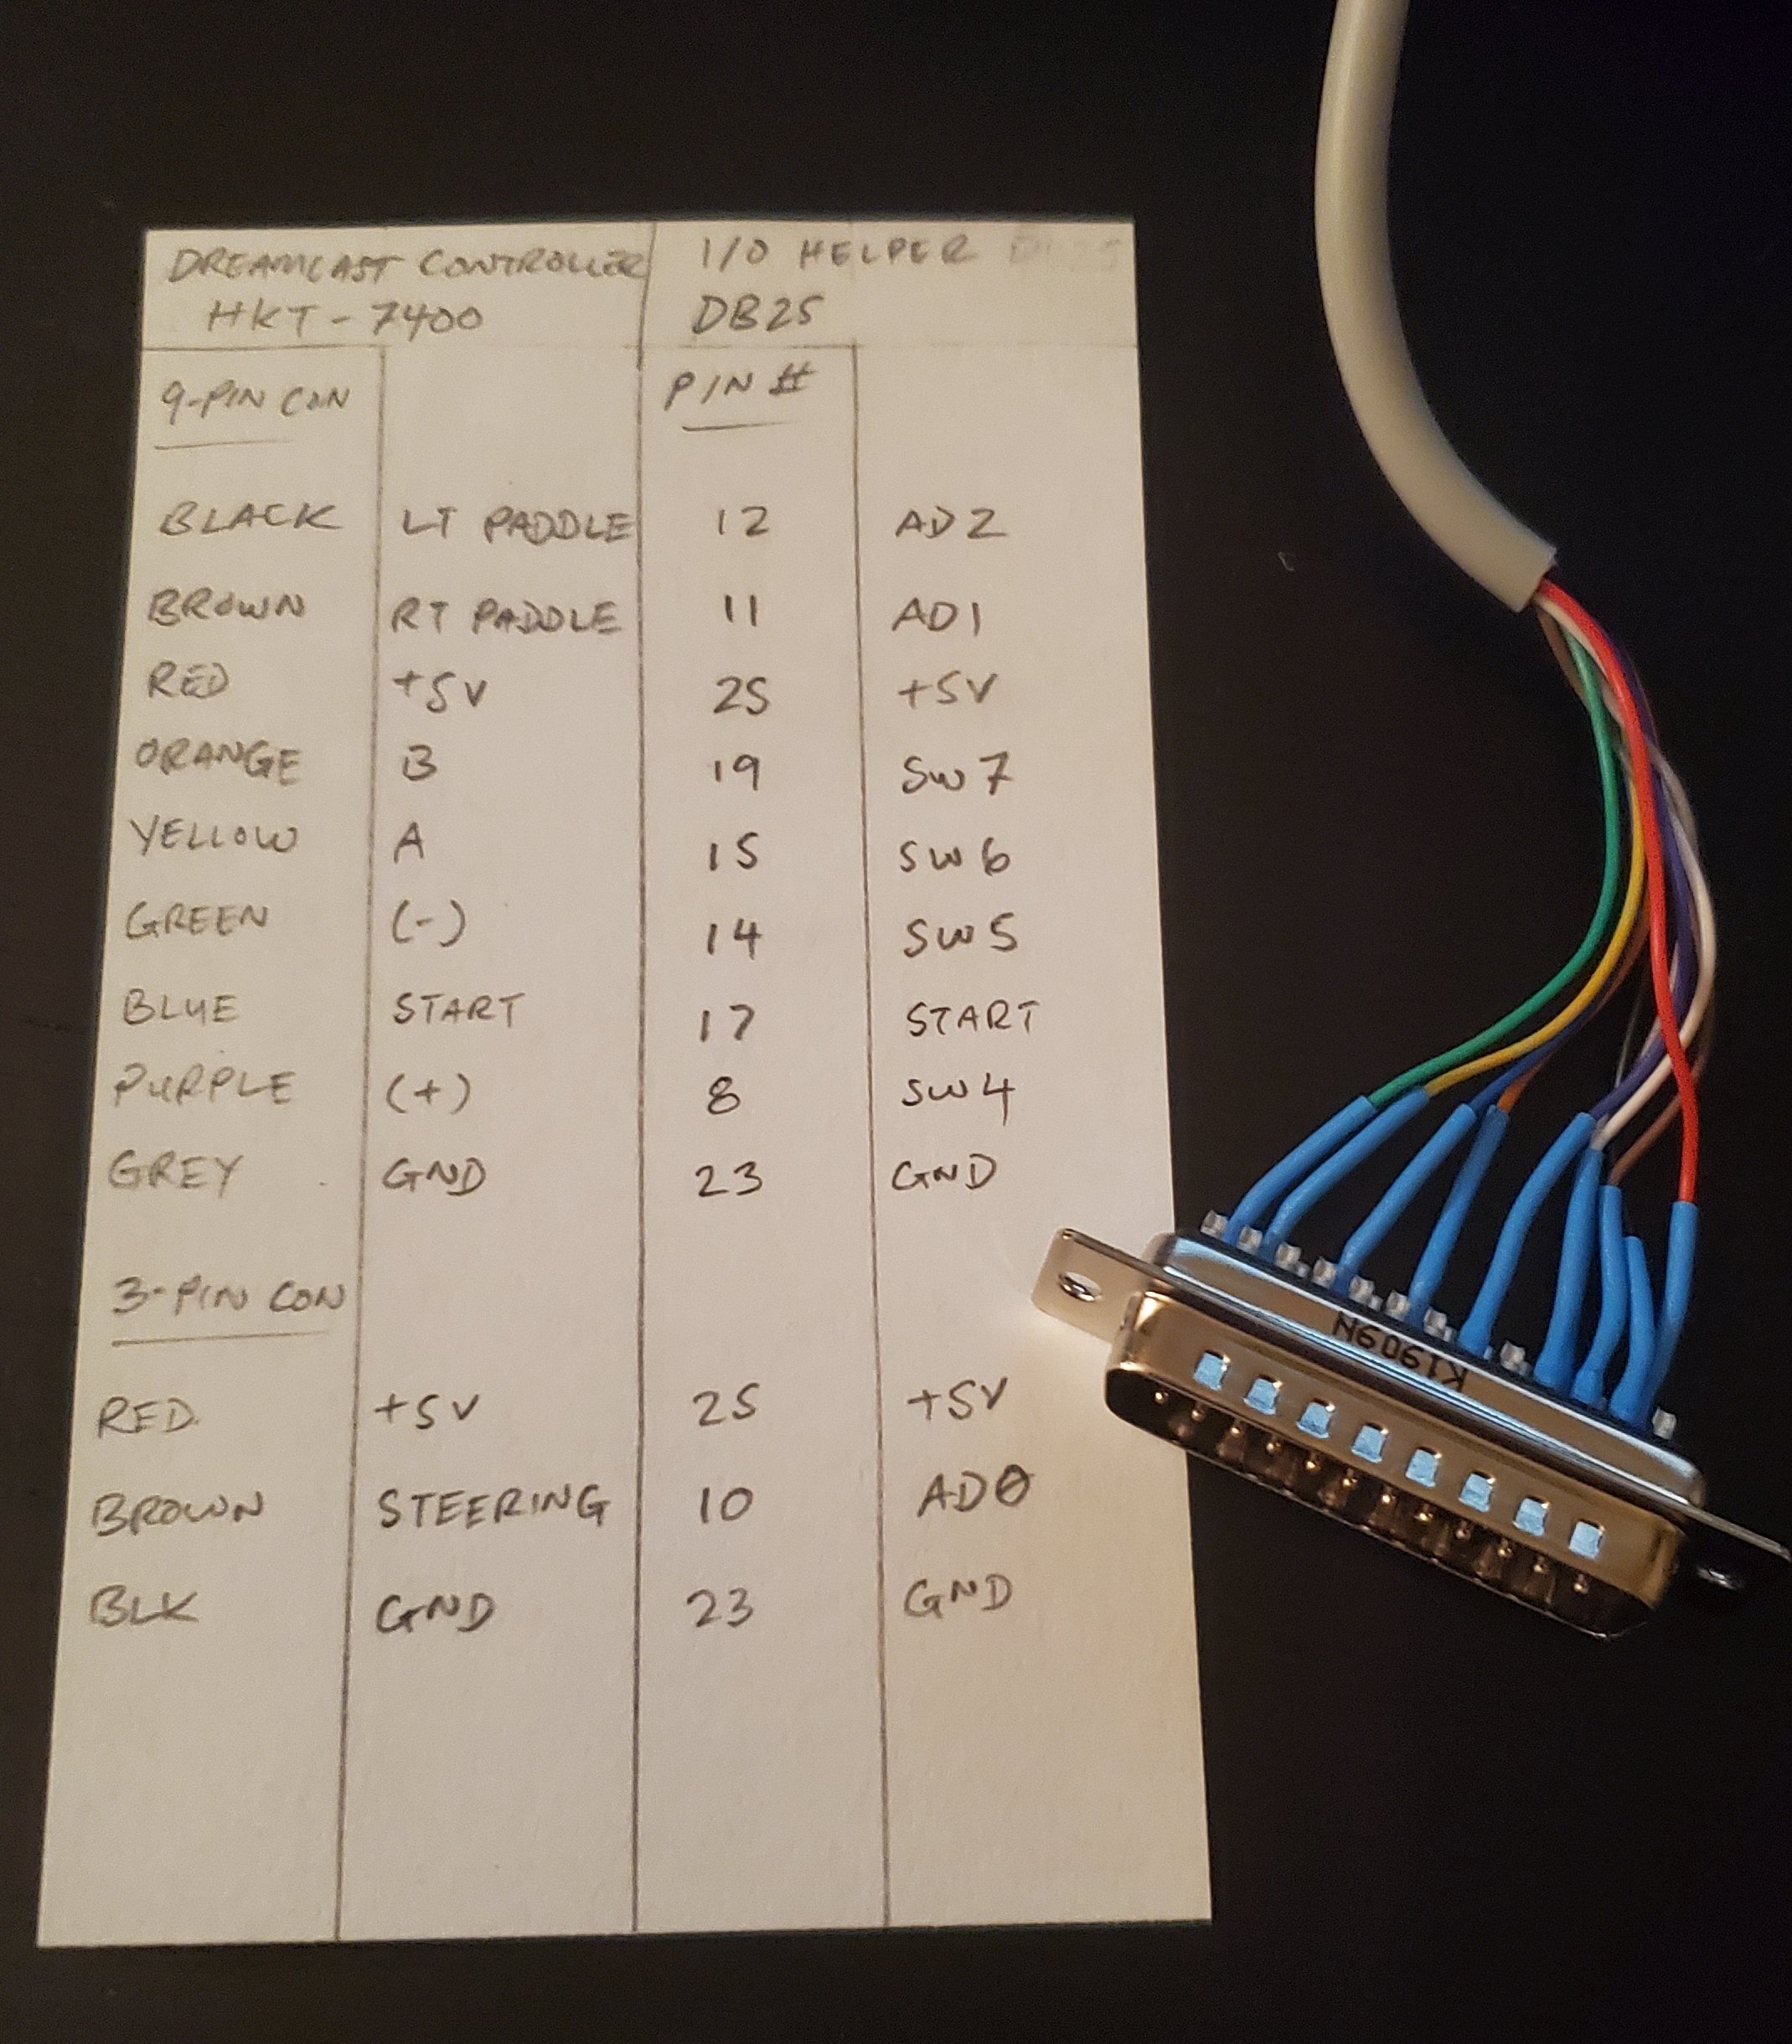 DREAMCAST CONTROLLER I/O HELPER
HKT-7400 DB25
9-PIN CON PIN #
BLACK LT PADDLE 12 AD2
BROWN RT PADDLE 11 AD1
RED +5V 25 +5V
ORANGE B 19 SW7
YELLOW A 15 SW6
GREEN (-) 14 SW5
BLUE START 17 START
PURPLE (+) 8 SW4
GREY GND 23 GND
3-PIN CON
RED +5V 25 +5V
BROWN STEERING 10 AD0
BLK GND 23 GND
K1909N